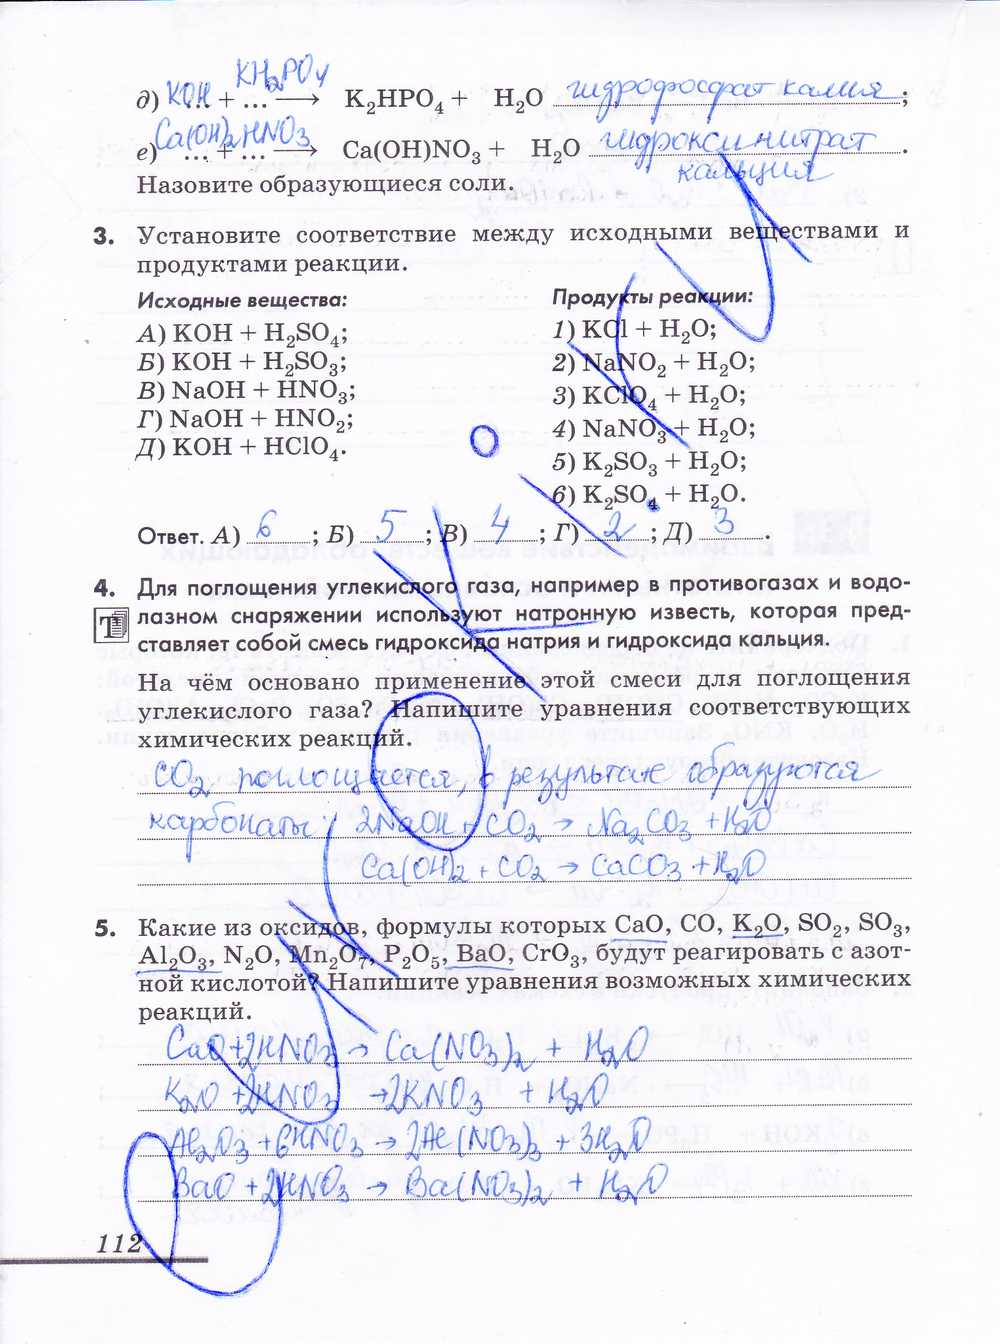 д) KOH + KH₂PO₄ ⟶ K₂HPO₄ + H₂O гидрофосфат калия;
е) Ca(OH)₂ + HNO₃ ⟶ Ca(OH)NO₃ + H₂O гидроксинитрат кальция.
Назовите образующиеся соли.
3. Установите соответствие между исходными веществами и
продуктами реакции.
Исходные вещества:
А) KOH + H₂SO₄;
Б) KOH + H₂SO₃;
В) NaOH + HNO₃;
Г) NaOH + HNO₂;
Д) KOH + HClO₄.
Продукты реакции:
1) KCl + H₂O;
2) NaNO₂ + H₂O;
3) KClO₄ + H₂O;
4) NaNO₃ + H₂O;
5) K₂SO₃ + H₂O;
6) K₂SO₄ + H₂O.
Ответ. А) 6; Б) 5; В) 4; Г) 2; Д) 3.
4. Для поглощения углекислого газа, например в противогазах и водо-
Т лазном снаряжении используют натронную известь, которая пред-
ставляет собой смесь гидроксида натрия и гидроксида кальция.
На чём основано применение этой смеси для поглощения
углекислого газа? Напишите уравнения соответствующих
химических реакций.
CO₂ поглощается, в результате образуются
карбонаты: 2NaOH + CO₂ → Na₂CO₃ + H₂O
Ca(OH)₂ + CO₂ → CaCO₃ + H₂O
5. Какие из оксидов, формулы которых CaO, CO, K₂O, SO₂, SO₃,
Al₂O₃, N₂O, Mn₂O₇, P₂O₅, BaO, CrO₃, будут реагировать с азот-
ной кислотой? Напишите уравнения возможных химических
реакций.
CaO + 2HNO₃ → Ca(NO₃)₂ + H₂O
K₂O + 2HNO₃ → 2KNO₃ + H₂O
Al₂O₃ + 6HNO₃ → 2Al(NO₃)₃ + 3H₂O
BaO + 2HNO₃ → Ba(NO₃)₂ + H₂O
112